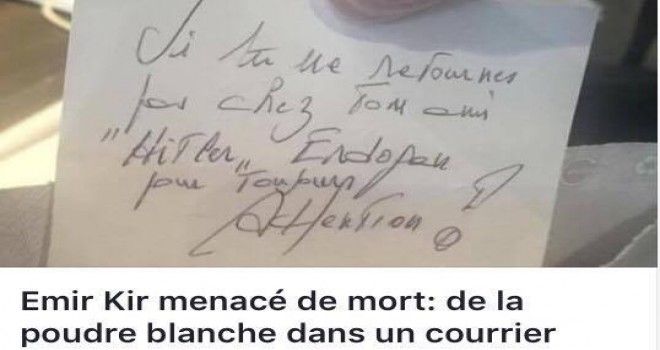 Si tu ne retournes
pas chez Ton ami
"Hitler" Erdogan
pour Toujours
Attention !
Emir Kir menacé de mort: de la
poudre blanche dans un courrier